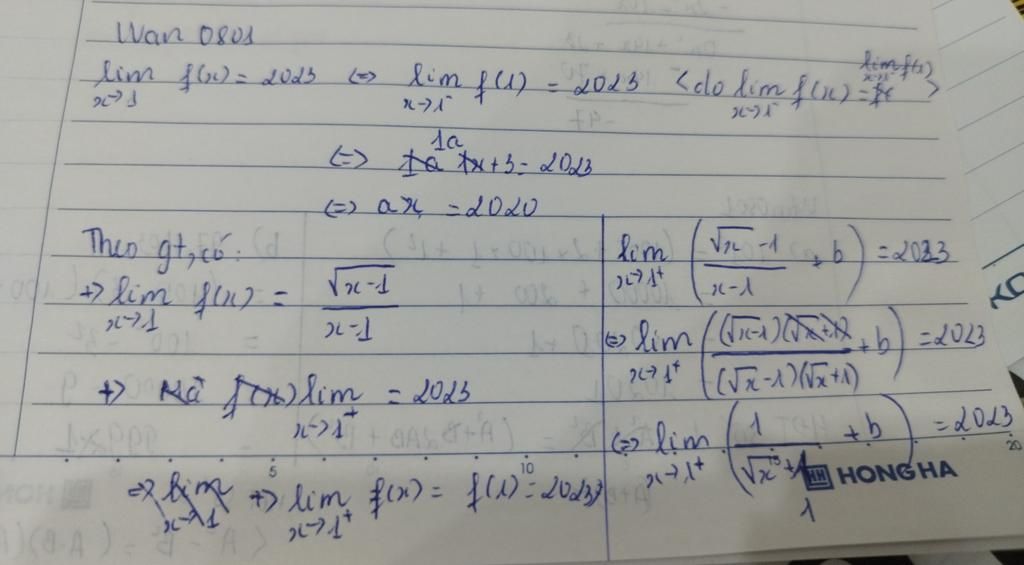 Wan 0801
lim x→1 f(x) = 2023 ⇔ lim x→1⁻ f(1) = 2023 <do lim x→1⁻ f(x) = lim x→1⁻ f(1)>
⇔ 1a + 3 = 2023
⇔ ax = 2020
Theo gt, có:
+> lim x→1 f(x) = √(x-1) / (x-1)
+> f(x) lim x→1⁺ = 2023
⇒ lim x→1 +> lim x→1⁺ f(x) = f(1) = 2023
lim x→1⁺ ((√x - 1)/(x - 1) + b) = 2023
⇔ lim x→1⁺ ((√x-1)(√x+1)/((√x-1)(√x+1)) + b) = 2023
⇔ lim x→1⁺ (1/(√x + 1) + b) = 2023
1
5 10 20
HONG HA